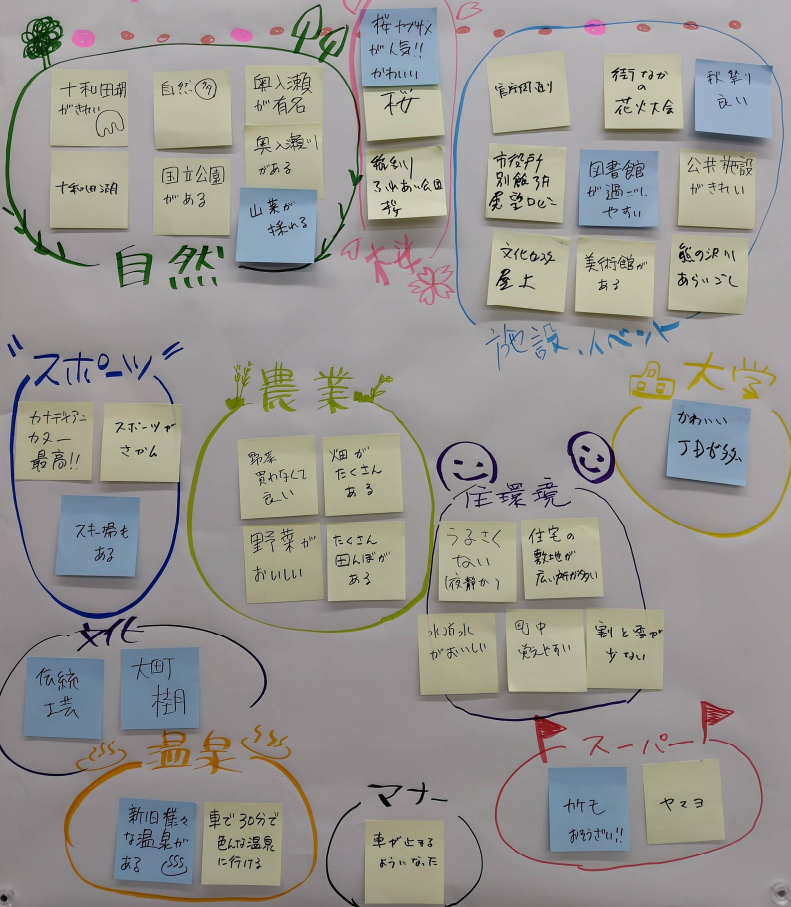 十和田湖
がきれい
自然
奥入瀬
が有名
十和田湖
国立公園
がある
奥入瀬川
がある
山菜が
採れる
自然
桜
が人気!!
かわいい
桜
ふれあい公園
桜
官庁街通り
街なか
の
花火大会
秋祭り
良い
市役所
別館
展望ロビー
図書館
が過ごし
やすい
公共施設
がきれい
文化センター
屋上
美術館が
ある
熊の沢川
あらいごし
施設、イベント
スポーツ
カナディアン
カヌー
最高!!
スポーツが
さかん
スキー場も
ある
農業
野菜
買わなくて
良い
畑が
たくさん
ある
野菜が
おいしい
たくさん
田んぼが
ある
大学
かわいい
JDが多い
住環境
うるさく
ない
(夜静か)
住宅の
敷地が
広い所が多い
水道水
がおいしい
町中
覚えやすい
割と雪が
少ない
文化
伝統
工芸
大町
桂月
温泉
新旧様々
な温泉が
ある
車で30分で
色んな温泉
に行ける
マナー
車が止まる
ようになった
スーパー
カケモ
おそうざい!!
ヤマヨ